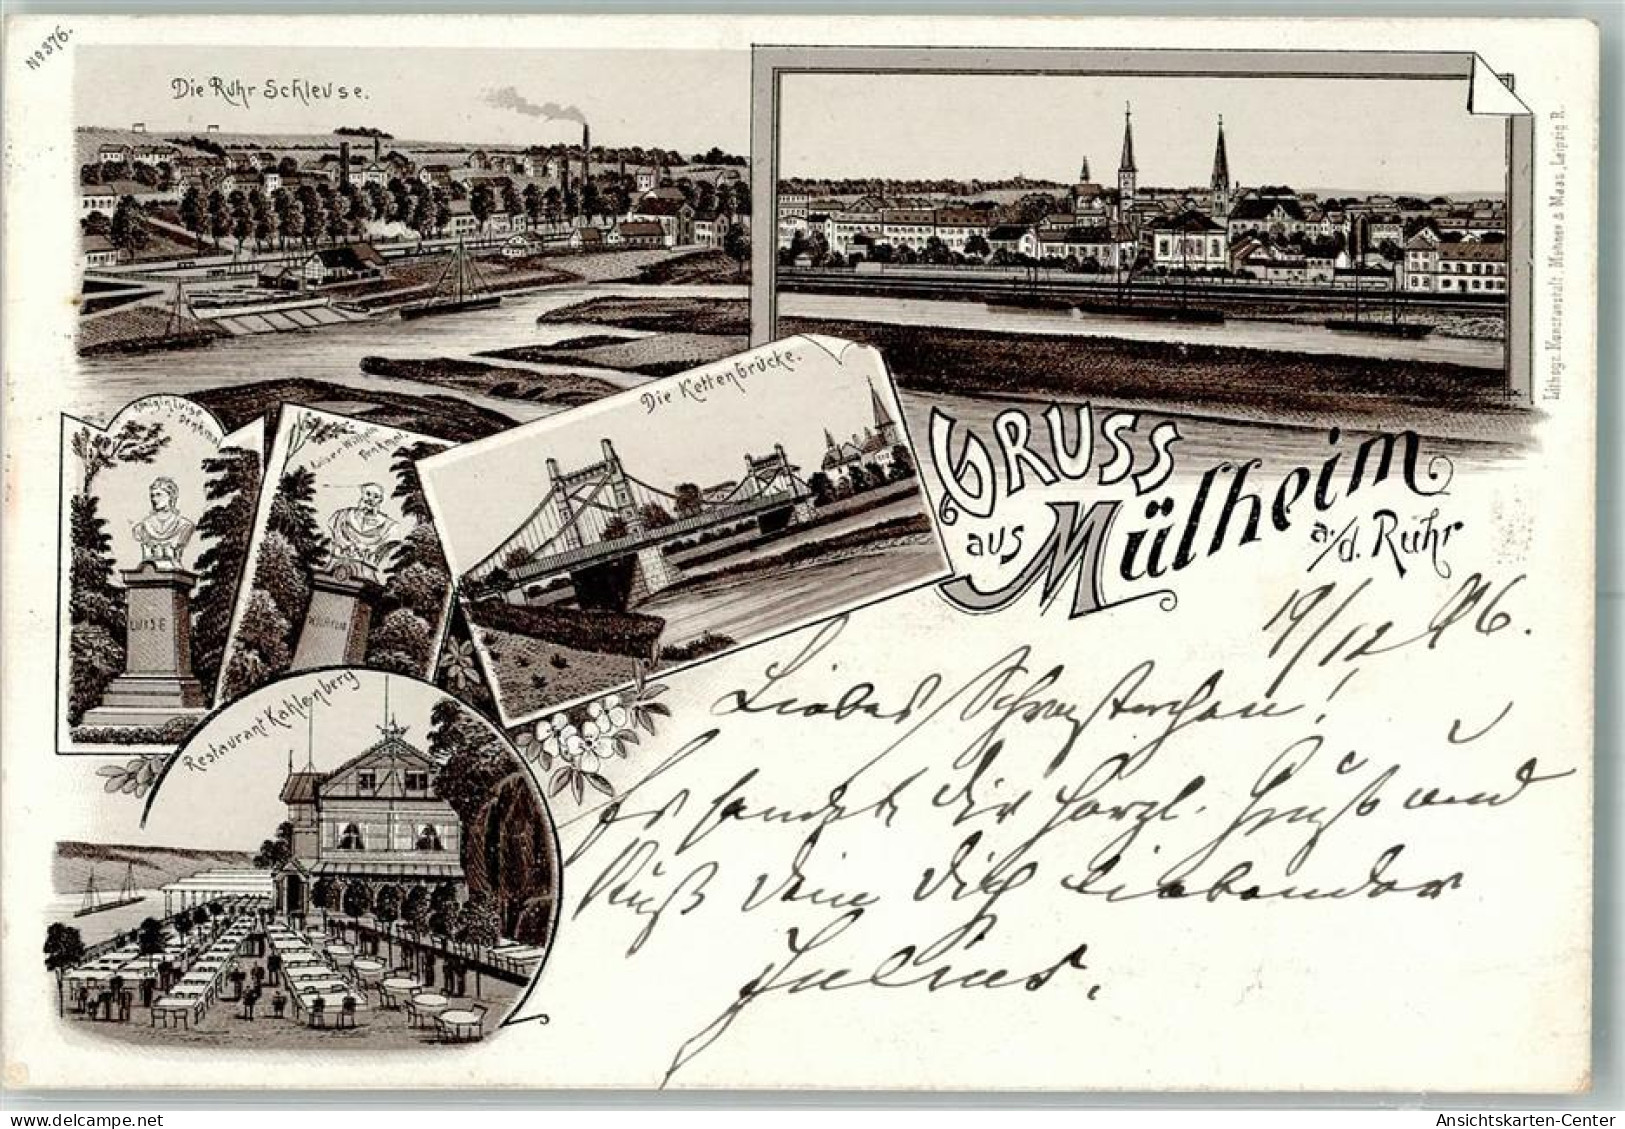 No 376.
Die Ruhr Schleuse.
Königin Luise
Denkmal
LUISE
Kaiser Wilhelm
Denkmal.
WILHELM
Die Kettenbrücke.
Restaurant Kahlenberg
GRUSS
aus Mülheim
a./d. Ruhr
Lithogr. Kunstanstalt, Mehner & Maas, Leipzig R.
19/12 96.
Liebes Schwesterchen!
Es sendet dir herzl. Gruß und
Kuß dein dich liebender
Julius.
Ansichtskarten-Center